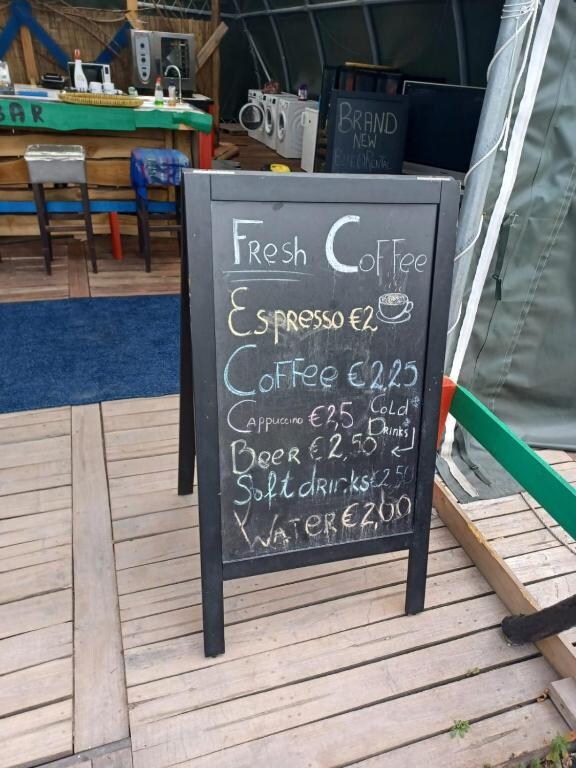 BAR
BRAND
NEW
Fresh Coffee
Espresso €2
Coffee €2,25
Cappuccino €2,5
Cold
Drinks
Beer €2,50
Soft drinks €2,50
Water €2,00